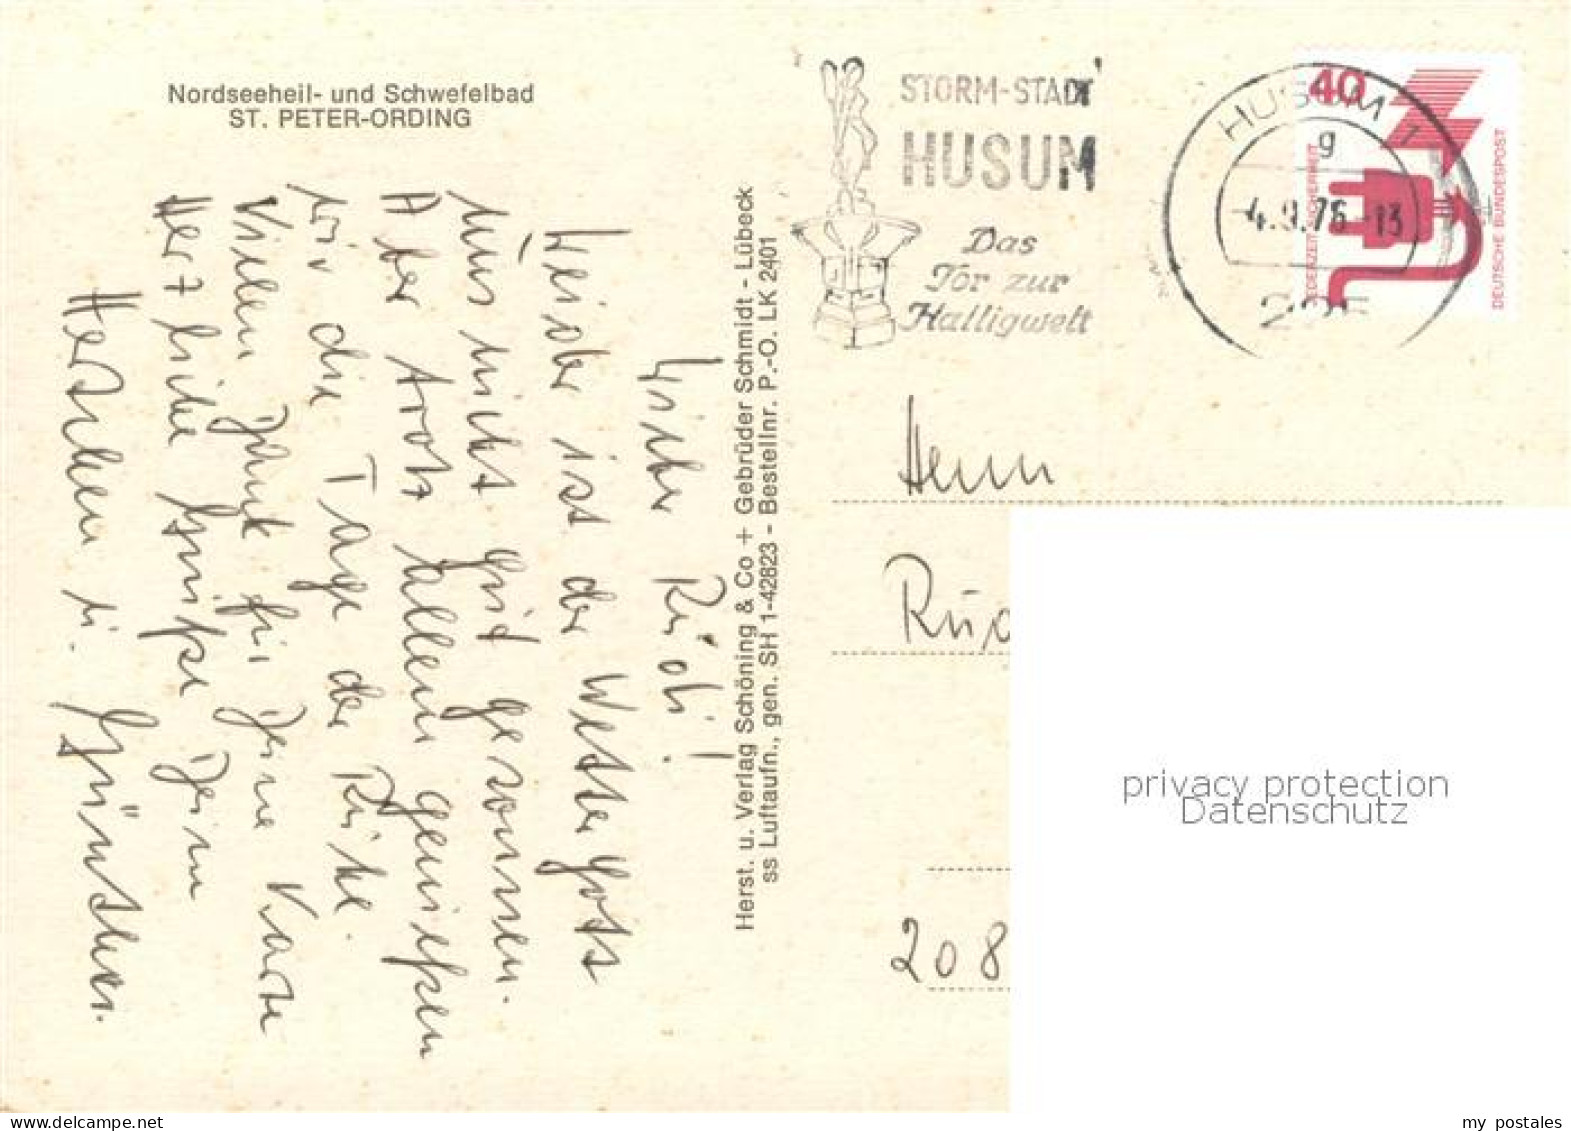 Nordseeheil- und Schwefelbad
ST. PETER-ORDING
Lieber Rüdi!
Leider ist der Wettergott
uns nicht gut gesonnen.
Aber trotz allem genießen
wir die Tage der Ruhe.
Vielen Dank für Deine Karte
Herzliche Grüße Deine
u. Günther.
Herst. u. Verlag Schöning & Co + Gebrüder Schmidt - Lübeck
ss Luftaufn., gen. SH 1-42823 - Bestellnr. P.-O. LK 2401
STORM-STADT
HUSUM
Das
Tor zur
Halligwelt
HUSUM 1
g
-4.9.76-13
225
40
JEDERZEIT SICHERHEIT
DEUTSCHE BUNDESPOST
Herrn
Rüd
208
privacy protection
Datenschutz
my postales